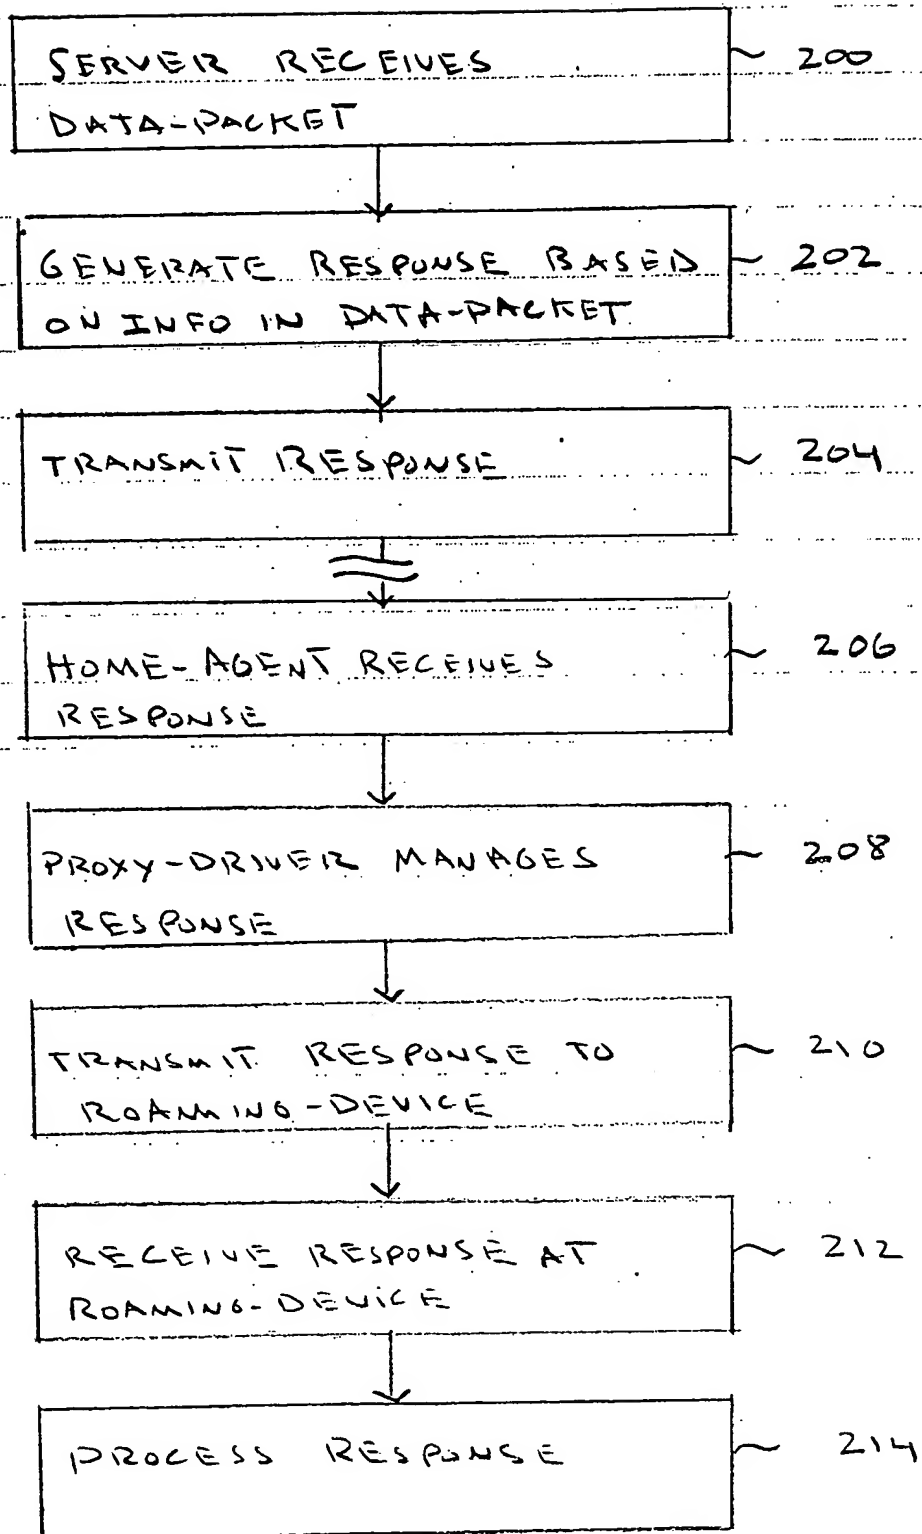 SERVER RECEIVES ~ 200
DATA-PACKET
GENERATE RESPONSE BASED ~ 202
ON INFO IN DATA-PACKET
TRANSMIT RESPONSE ~ 204
HOME-AGENT RECEIVES ~ 206
RESPONSE
PROXY-DRIVER MANAGES ~ 208
RESPONSE
TRANSMIT RESPONSE TO ~ 210
ROAMING-DEVICE
RECEIVE RESPONSE AT ~ 212
ROAMING-DEVICE
PROCESS RESPONSE ~ 214